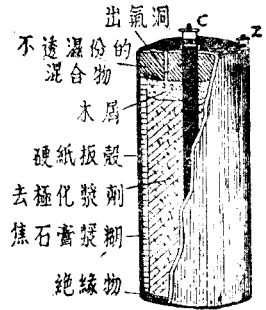 出氣洞
C
Z
不透濕份的
混合物
木屑
硬紙板殼
去極化漿劑
焦石膏漿糊
絕緣物